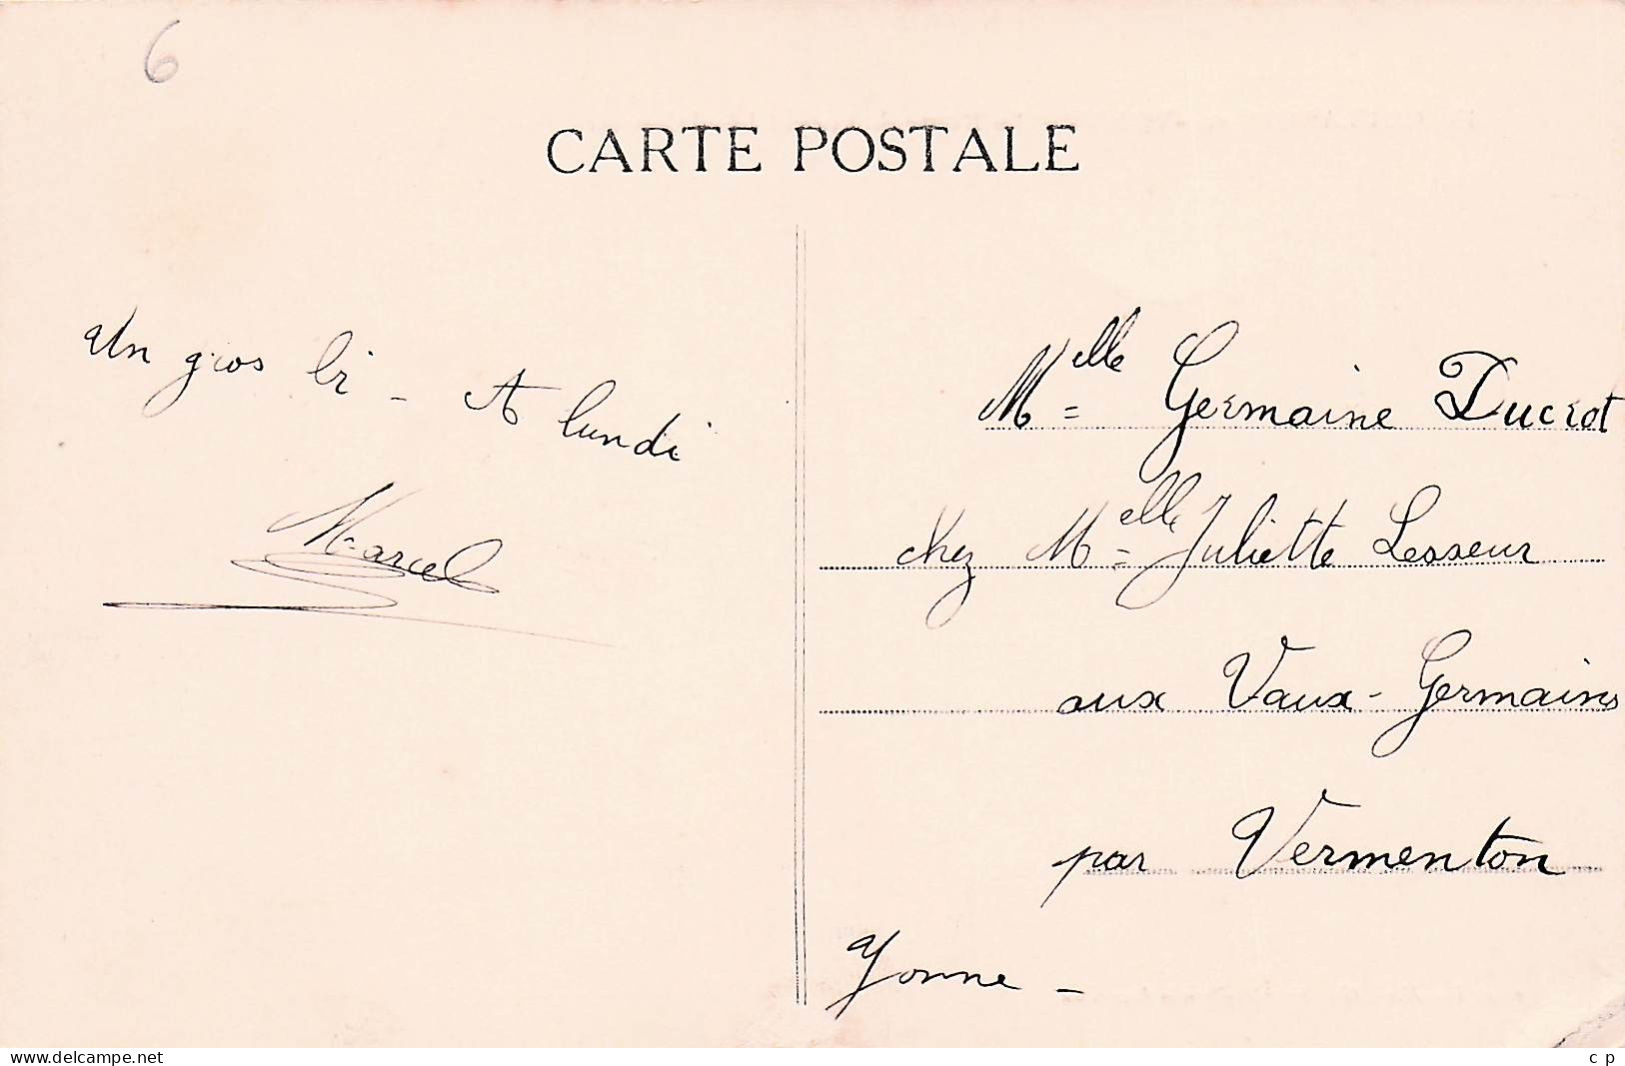 6
CARTE POSTALE
Un gros bi - A lundi
Marcel
Melle Germaine Ducrot
chez Melle Juliette Lesseur
aux Vaux-Germains
par Vermenton
Yonne -
www.delcampe.net
c p